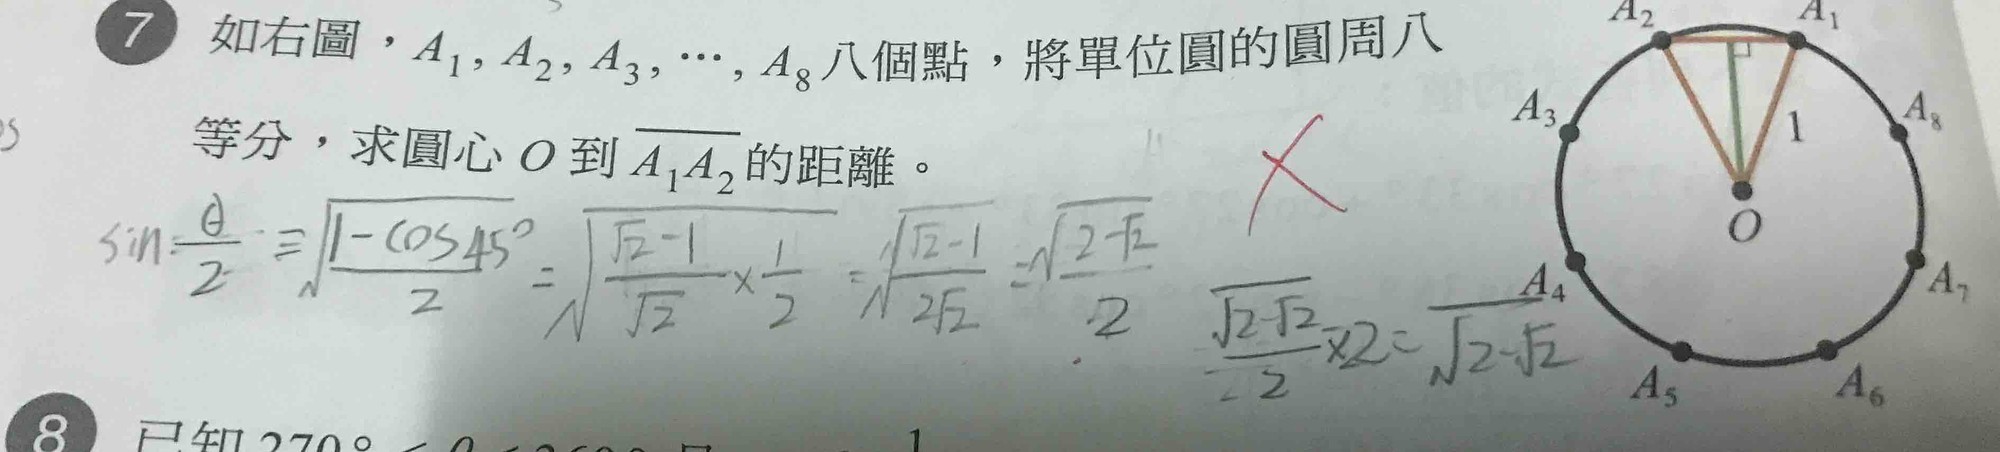 7 如右圖，A₁, A₂, A₃, ⋯, A₈ 八個點，將單位圓的圓周八
等分，求圓心 O 到 A₁A₂ 的距離。
sin θ/2 = √((1-cos45°)/2) = √((√2-1)/√2 × 1/2) = √((√2-1)/(2√2)) = √(2-√2)/2
√(2-√2)/2 ×2 = √(2-√2)
A₂ A₁
A₃ 1 A₈
O
A₄ A₇
A₅ A₆
8 已知 270° < θ